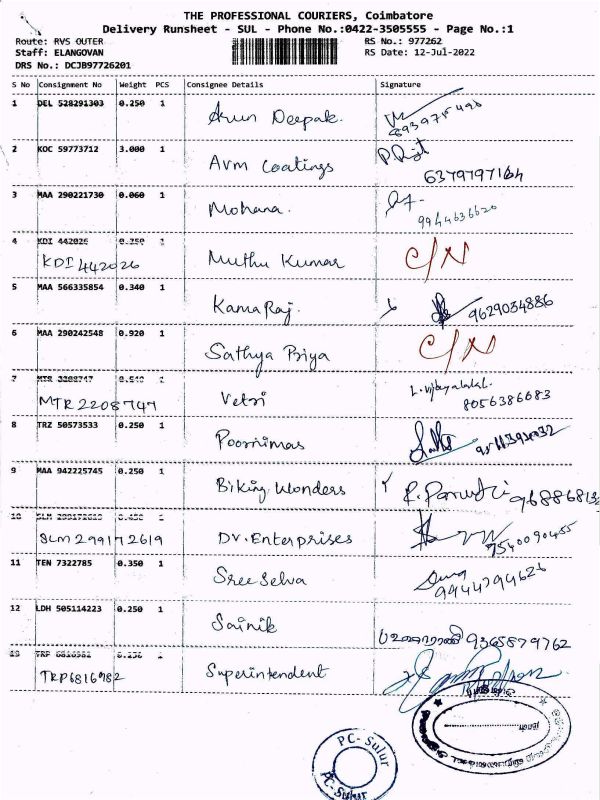 THE PROFESSIONAL COURIERS, Coimbatore
Delivery Runsheet - SUL - Phone No.:0422-3505555 - Page No.:1
Route: RVS OUTER RS No.: 977262
Staff: ELANGOVAN RS Date: 12-Jul-2022
DRS No.: DCJB97726201
S No Consignment No Weight PCS Consignee Details Signature
1 DEL 528291303 0.250 1 Arun Deepak.
8939715490
2 KOC 59773712 3.000 1 Avm Coatings
6379797164
3 MAA 290221730 0.060 1 Mohana.
9944636620
4 KDI 442026 0.250 1 Muthu Kumar C/N
KDI 442026
5 MAA 566335854 0.340 1 Kama Raj. 9629034886
6 MAA 290242548 0.920 1 Sathya Priya C/N
7 1 Vetri
MTR 2208747 8056386683
8 TRZ 50573533 0.250 1 Poornimas
9 MAA 942225745 0.250 1 Biking Wonders
10 1 DV. Enterprises
SLM 299172619 7540090455
11 TEN 7322785 0.350 1 Sree Selva
9944794626
12 LDH 505114223 0.250 1 Sainik 9365879762
13 TRP 6816982 1 Superintendent
TRP6816982
PC-Sulur
PC-Sulur